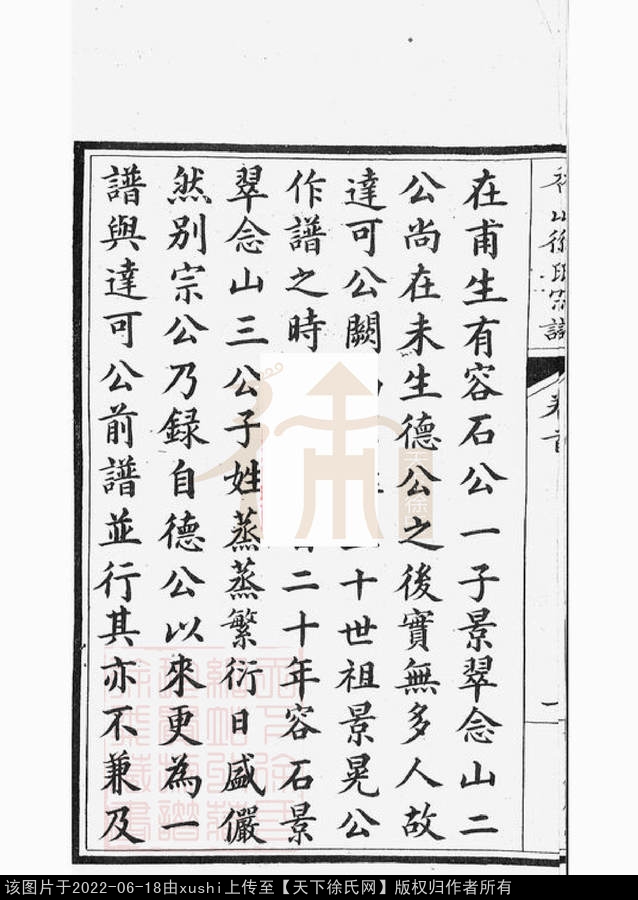 徐氏宗譜
卷首
一
在甫生有容石公一子景翠念山二
公尚在未生德公之後實無多人故
達可公闕 二十世祖景晃公
作譜之時 二十年容石景
翠念山三公子姓蒸蒸繁衍日盛儼
然別宗公乃録自德公以來更為一
譜與達可公前譜並行其亦不兼及
天下徐
该图片于2022-06-18由xushi上传至【天下徐氏网】版权归作者所有